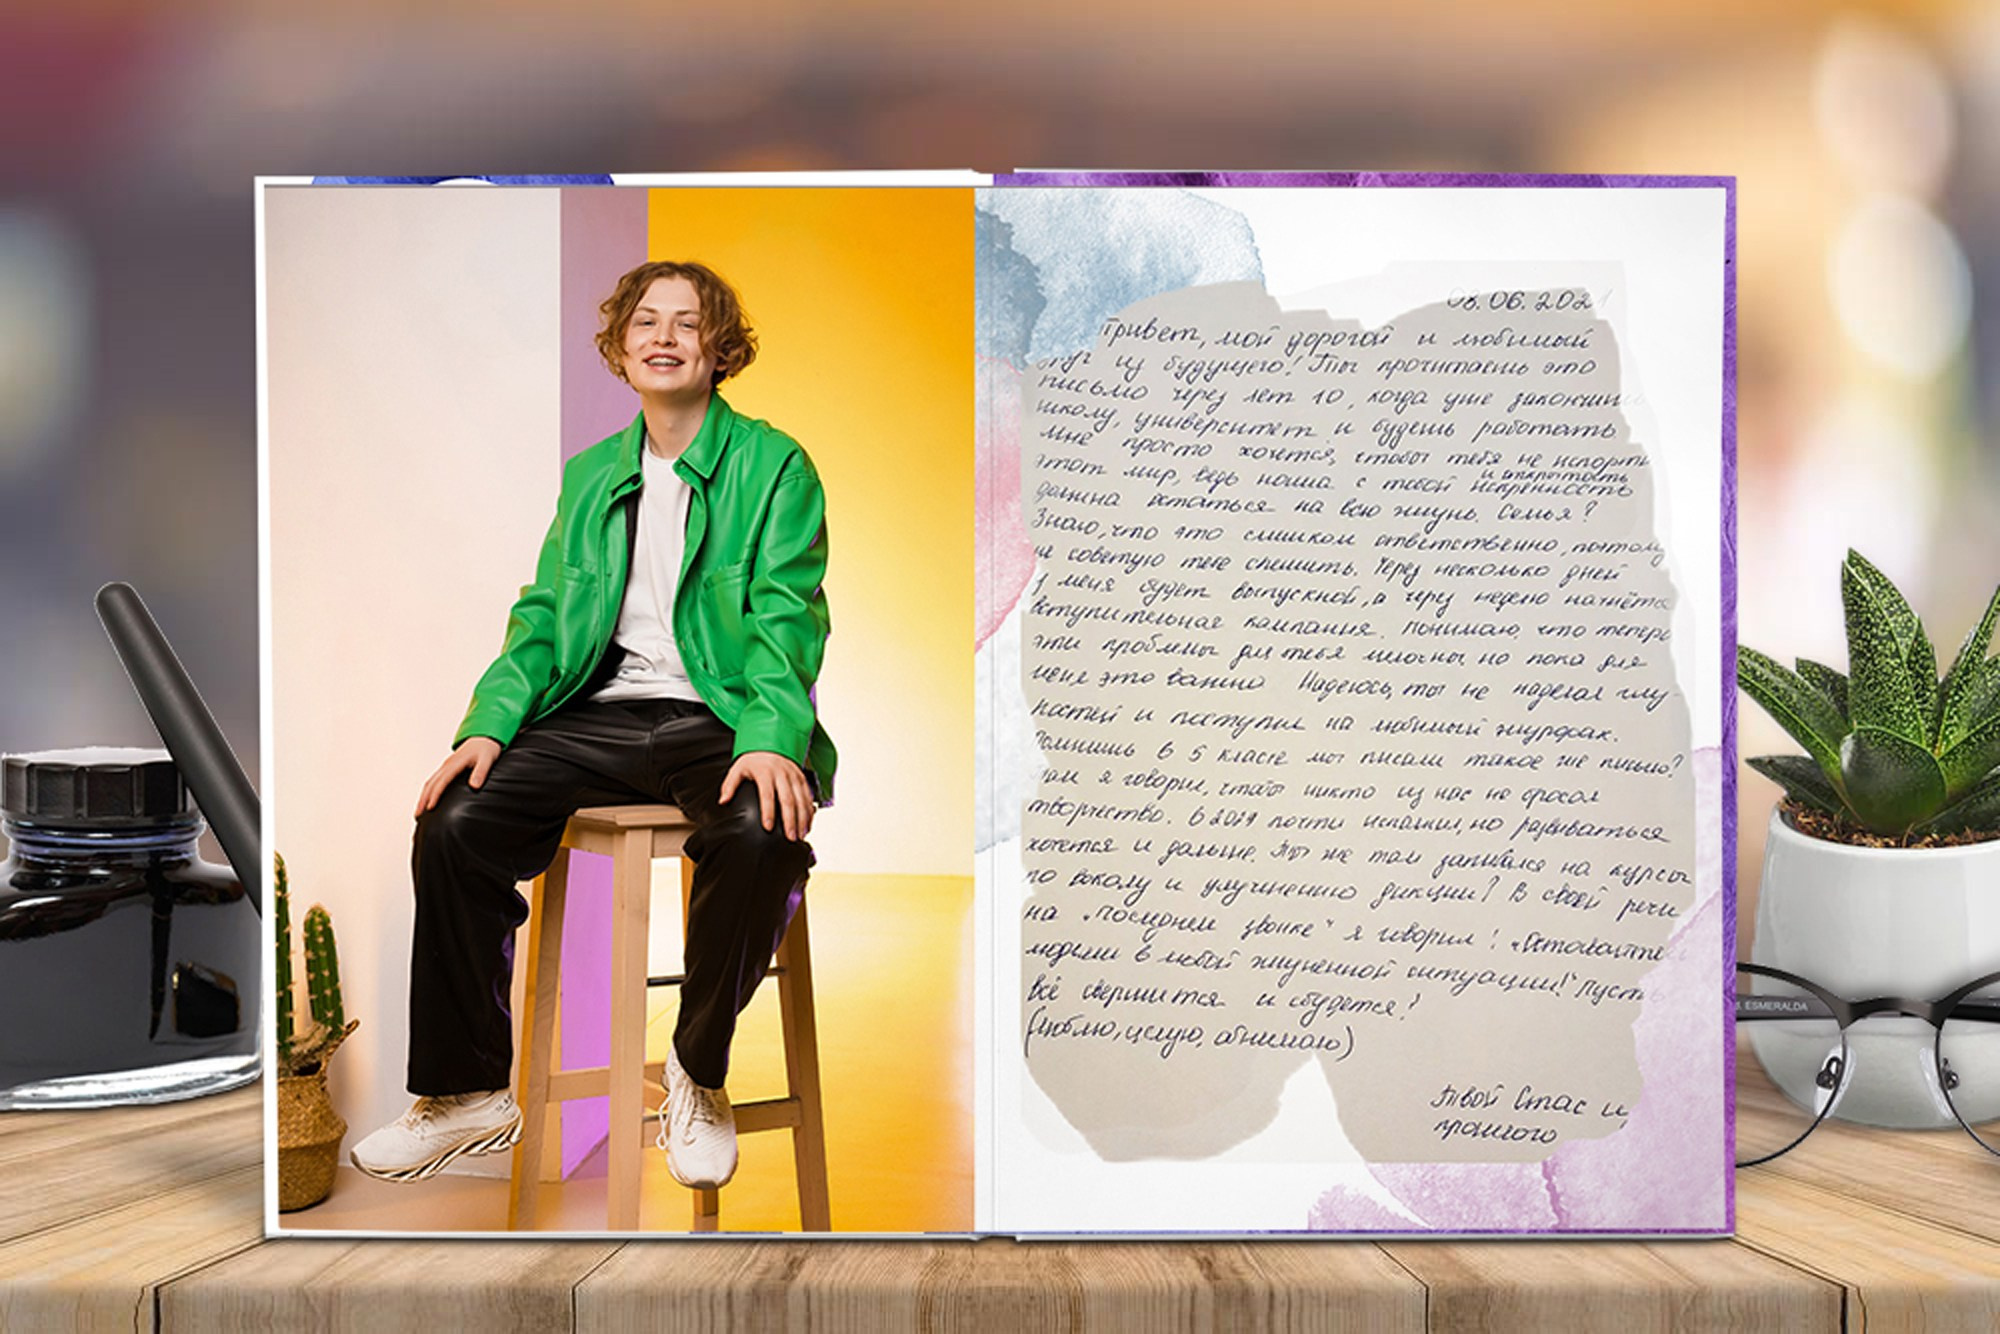 08.06.2021
Привет, мой дорогой и любимый
друг из будущего! Ты прочитаешь это
письмо через лет 10, когда уже закончишь
школу, университет и будешь работать
Мне просто хочется, чтобы тебя не испортил
этот мир, ведь наша с тобой искренность и открытость
должна остаться на всю жизнь. Семья?
Знаю, что это слишком ответственно, поэтому
не советую тебе спешить. Через несколько дней
у меня будет выпускной, а через неделю начнётся
вступительная кампания. Понимаю, что теперь
эти проблемы для тебя мелочны, но пока для
меня это важно. Надеюсь, ты не наделал глу-
постей и поступил на любимый журфак.
Помнишь в 5 классе мы писали такое же письмо?
Там я говорил, чтобы никто из нас не бросал
творчество. В 2021 почти исполнил, но развиваться
хочется и дальше. Ты же там записался на курсы
по вокалу и улучшению дикции? В своей речи
на "Последнем звонке" я говорил: "Оставайтесь
людьми в любой жизненной ситуации!" Пусть
всё свершится и сбудется!
(Люблю, целую, обнимаю)
Твой Стас из
прошлого
ESMERALDA